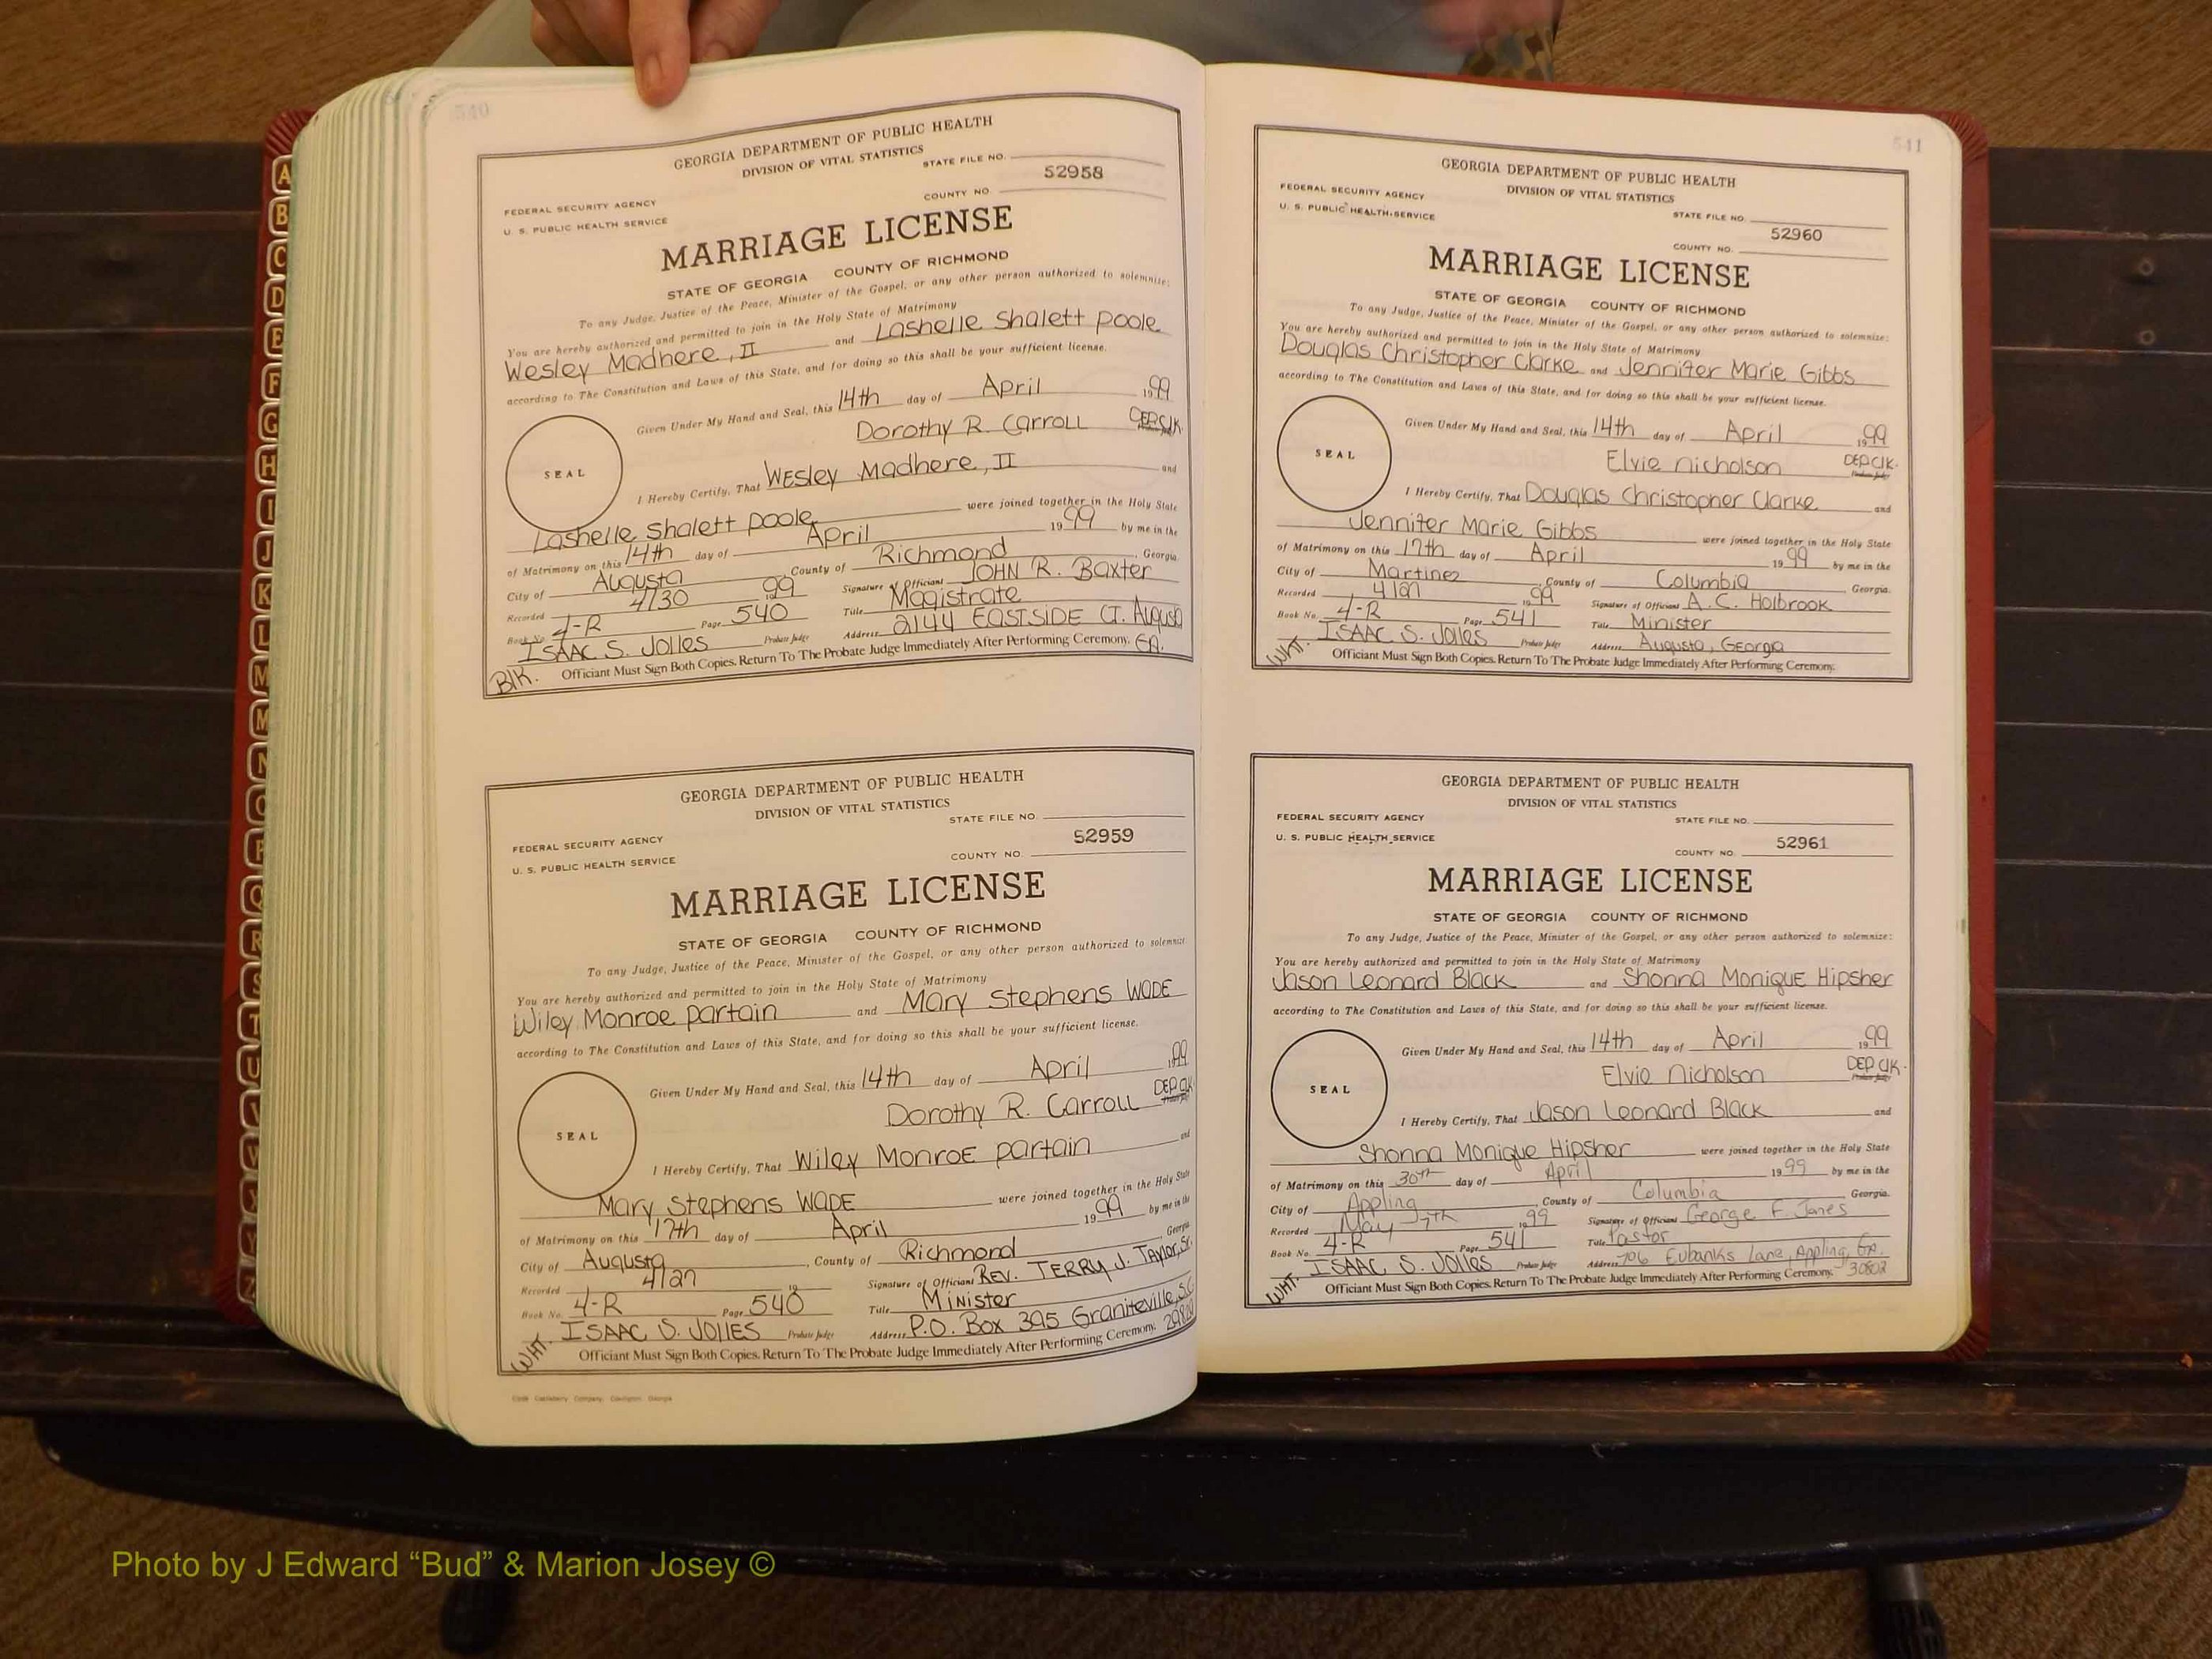 540
GEORGIA DEPARTMENT OF PUBLIC HEALTH
DIVISION OF VITAL STATISTICS
STATE FILE NO.
52958
FEDERAL SECURITY AGENCY
COUNTY NO.
U. S. PUBLIC HEALTH SERVICE
MARRIAGE LICENSE
STATE OF GEORGIA COUNTY OF RICHMOND
To any Judge, Justice of the Peace, Minister of the Gospel, or any other person authorized to solemnize:
You are hereby authorized and permitted to join in the Holy State of Matrimony
Wesley Madhere, II and Lashelle Shalett Poole
according to The Constitution and Laws of this State, and for doing so this shall be your sufficient license.
Given Under My Hand and Seal, this 14th day of April 1999
Dorothy R. Carroll DEP CLK.
SEAL
I Hereby Certify, That Wesley Madhere, II and
Lashelle Shalett Poole were joined together in the Holy State
of Matrimony on this 14th day of April 1999 by me in the
City of Augusta County of Richmond, Georgia.
Recorded 4/30 1999 Signature of Officiant JOHN R. Baxter
Book No. 4-R Page 540 Title Magistrate
ISAAC S. Jolles Probate Judge Address 2144 EASTSIDE CT. Augusta GA.
BlK. Officiant Must Sign Both Copies. Return To The Probate Judge Immediately After Performing Ceremony.
GEORGIA DEPARTMENT OF PUBLIC HEALTH
DIVISION OF VITAL STATISTICS
STATE FILE NO.
52959
FEDERAL SECURITY AGENCY
COUNTY NO.
U. S. PUBLIC HEALTH SERVICE
MARRIAGE LICENSE
STATE OF GEORGIA COUNTY OF RICHMOND
To any Judge, Justice of the Peace, Minister of the Gospel, or any other person authorized to solemnize
You are hereby authorized and permitted to join in the Holy State of Matrimony
Wiley Monroe Partain and Mary Stephens WADE
according to The Constitution and Laws of this State, and for doing so this shall be your sufficient license.
Given Under My Hand and Seal, this 14th day of April 1999
Dorothy R. Carroll DEP CLK.
SEAL
I Hereby Certify, That Wiley Monroe Partain and
Mary Stephens WADE were joined together in the Holy State
of Matrimony on this 17th day of April 1999 by me in the
City of Augusta, County of Richmond Georgia
Recorded 4/27 19 Signature of Officiant REV. TERRY J. Taylor, Sr.
Book No. 4-R Page 540 Title Minister
ISAAC S. JOllES Probate Judge Address P.O. Box 395 Graniteville, S.C.
WHT. Officiant Must Sign Both Copies. Return To The Probate Judge Immediately After Performing Ceremony.
541
GEORGIA DEPARTMENT OF PUBLIC HEALTH
DIVISION OF VITAL STATISTICS
FEDERAL SECURITY AGENCY
STATE FILE NO.
U. S. PUBLIC HEALTH SERVICE
52960
COUNTY NO.
MARRIAGE LICENSE
STATE OF GEORGIA COUNTY OF RICHMOND
To any Judge, Justice of the Peace, Minister of the Gospel, or any other person authorized to solemnize:
You are hereby authorized and permitted to join in the Holy State of Matrimony
Douglas Christopher Clarke and Jennifer Marie Gibbs
according to The Constitution and Laws of this State, and for doing so this shall be your sufficient license.
Given Under My Hand and Seal, this 14th day of April 1999
Elvie Nicholson DEP CLK.
SEAL
I Hereby Certify, That Douglas Christopher Clarke and
Jennifer Marie Gibbs were joined together in the Holy State
of Matrimony on this 17th day of April 1999 by me in the
City of Martinez, County of Columbia Georgia.
Recorded 4/27 1999 Signature of Officiant A.C. Holbrook
Book No. 4-R Page 541 Title Minister
ISAAC S. Jolles Probate Judge Address Augusta, Georgia
WHT. Officiant Must Sign Both Copies. Return To The Probate Judge Immediately After Performing Ceremony.
GEORGIA DEPARTMENT OF PUBLIC HEALTH
DIVISION OF VITAL STATISTICS
FEDERAL SECURITY AGENCY
STATE FILE NO.
U. S. PUBLIC HEALTH SERVICE
52961
COUNTY NO.
MARRIAGE LICENSE
STATE OF GEORGIA COUNTY OF RICHMOND
To any Judge, Justice of the Peace, Minister of the Gospel, or any other person authorized to solemnize:
You are hereby authorized and permitted to join in the Holy State of Matrimony
Jason Leonard Black and Shonna Monique Hipsher
according to The Constitution and Laws of this State, and for doing so this shall be your sufficient license.
Given Under My Hand and Seal, this 14th day of April 1999
Elvie Nicholson DEP CLK.
SEAL
I Hereby Certify, That Jason Leonard Black and
Shonna Monique Hipsher were joined together in the Holy State
of Matrimony on this 30th day of April 1999 by me in the
City of Appling, County of Columbia, Georgia.
Recorded May 7th 1999 Signature of Officiant George F. Jones
Book No. 4-R Page 541 Title Pastor
ISAAC S. Jolles Probate Judge Address 706 Eubanks Lane, Appling, GA. 30802
WHT. Officiant Must Sign Both Copies. Return To The Probate Judge Immediately After Performing Ceremony.
Photo by J Edward “Bud” & Marion Josey ©